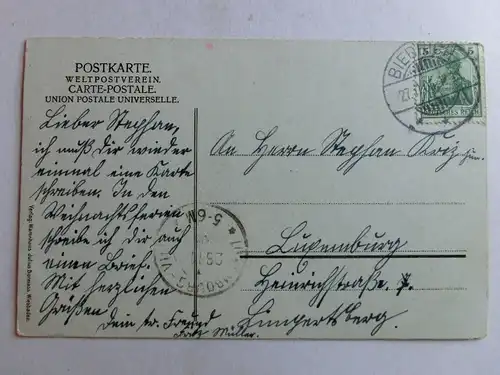 POSTKARTE.
WELTPOSTVEREIN.
CARTE-POSTALE.
UNION POSTALE UNIVERSELLE.
Lieber Stephan,
ich muß dir wieder
einmal eine Karte
schreiben. In den
Weihnachtsferien
schreibe ich dir auch
einen Brief.
Mit herzlichen
Grüßen
Dein tr. Freund
Fritz Müller.
An Herrn Stephan Kriz jun.
Luxemburg
Heinrichstraße 7.
Limpertsberg.
BIEB
27.
5
5-6N
LUXEMBOURG-VILLE
Verlag Wiesbaden